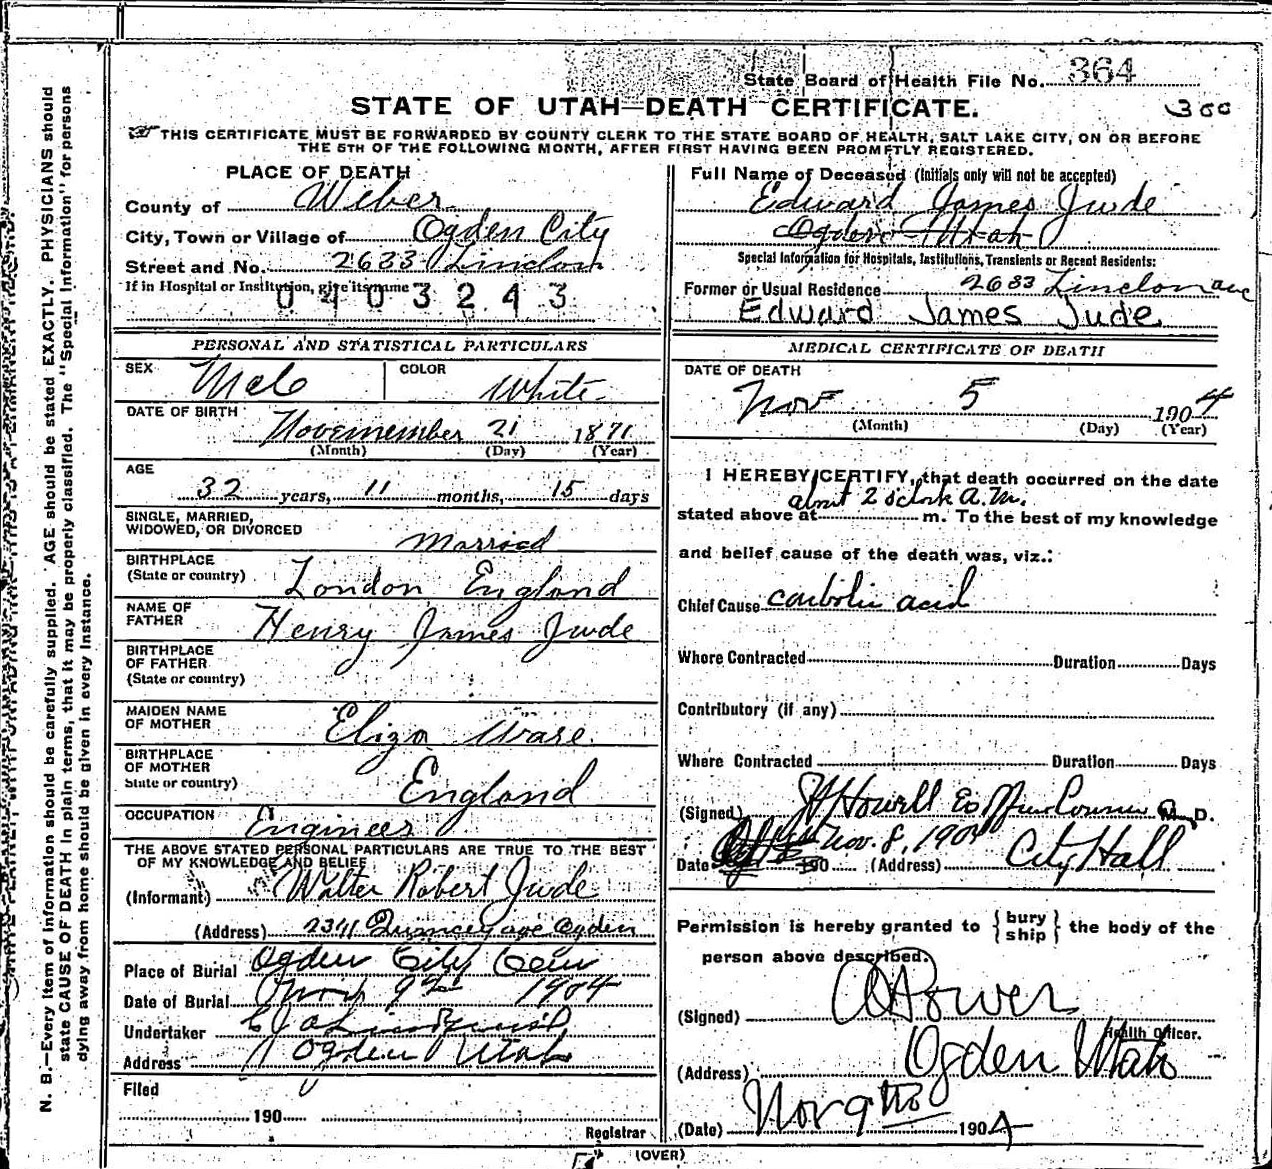 State Board of Health File No. 364
STATE OF UTAH—DEATH CERTIFICATE.
300
THIS CERTIFICATE MUST BE FORWARDED BY COUNTY CLERK TO THE STATE BOARD OF HEALTH, SALT LAKE CITY, ON OR BEFORE
THE 5TH OF THE FOLLOWING MONTH, AFTER FIRST HAVING BEEN PROMPTLY REGISTERED.
PLACE OF DEATH
County of Weber
City, Town or Village of Ogden City
Street and No. 2633 Lincoln
If in Hospital or Institution, give its name
0403243
Full Name of Deceased (Initials only will not be accepted)
Edward James Jude
Ogden Utah
Special Information for Hospitals, Institutions, Transients or Recent Residents:
Former or Usual Residence 2633 Linclon ave
Edward James Jude
PERSONAL AND STATISTICAL PARTICULARS
SEX Male COLOR White
DATE OF BIRTH Novemember 21 1871
(Month) (Day) (Year)
AGE
32 years, 11 months, 15 days
SINGLE, MARRIED,
WIDOWED, OR DIVORCED Married
BIRTHPLACE
(State or country) London England
NAME OF
FATHER Henry James Jude
BIRTHPLACE
OF FATHER
(State or country)
MAIDEN NAME
OF MOTHER Eliza Ware
BIRTHPLACE
OF MOTHER
State or country) England
OCCUPATION Engineer
THE ABOVE STATED PERSONAL PARTICULARS ARE TRUE TO THE BEST
OF MY KNOWLEDGE AND BELIEF
(Informant) Walter Robert Jude
(Address) 2341 Quincey ave Ogden
Place of Burial Ogden City Cem
Date of Burial Nov 9th 1904
Undertaker
Address Ogden Utah
Filed
190
Registrar
MEDICAL CERTIFICATE OF DEATH
DATE OF DEATH
Nov 5 1904
(Month) (Day) (Year)
I HEREBY CERTIFY, that death occurred on the date
about 2 oclock A.M.
stated above at m. To the best of my knowledge
and belief cause of the death was, viz.:
Chief Cause carbolic acid
Where Contracted Duration Days
Contributory (if any)
Where Contracted Duration Days
(Signed) Howell M. D.
Date Nov. 8, 1904 190 (Address) City Hall
Permission is hereby granted to { bury
ship } the body of the
person above described.
(Signed)
Health Officer.
(Address) Ogden Utah
(Date) Nov 9th 1904
(OVER)
N. B.—Every item of information should be carefully supplied. AGE should be stated EXACTLY. PHYSICIANS should
state CAUSE OF DEATH in plain terms, that it may be properly classified. The "Special Information" for persons
dying away from home should be given in every instance.